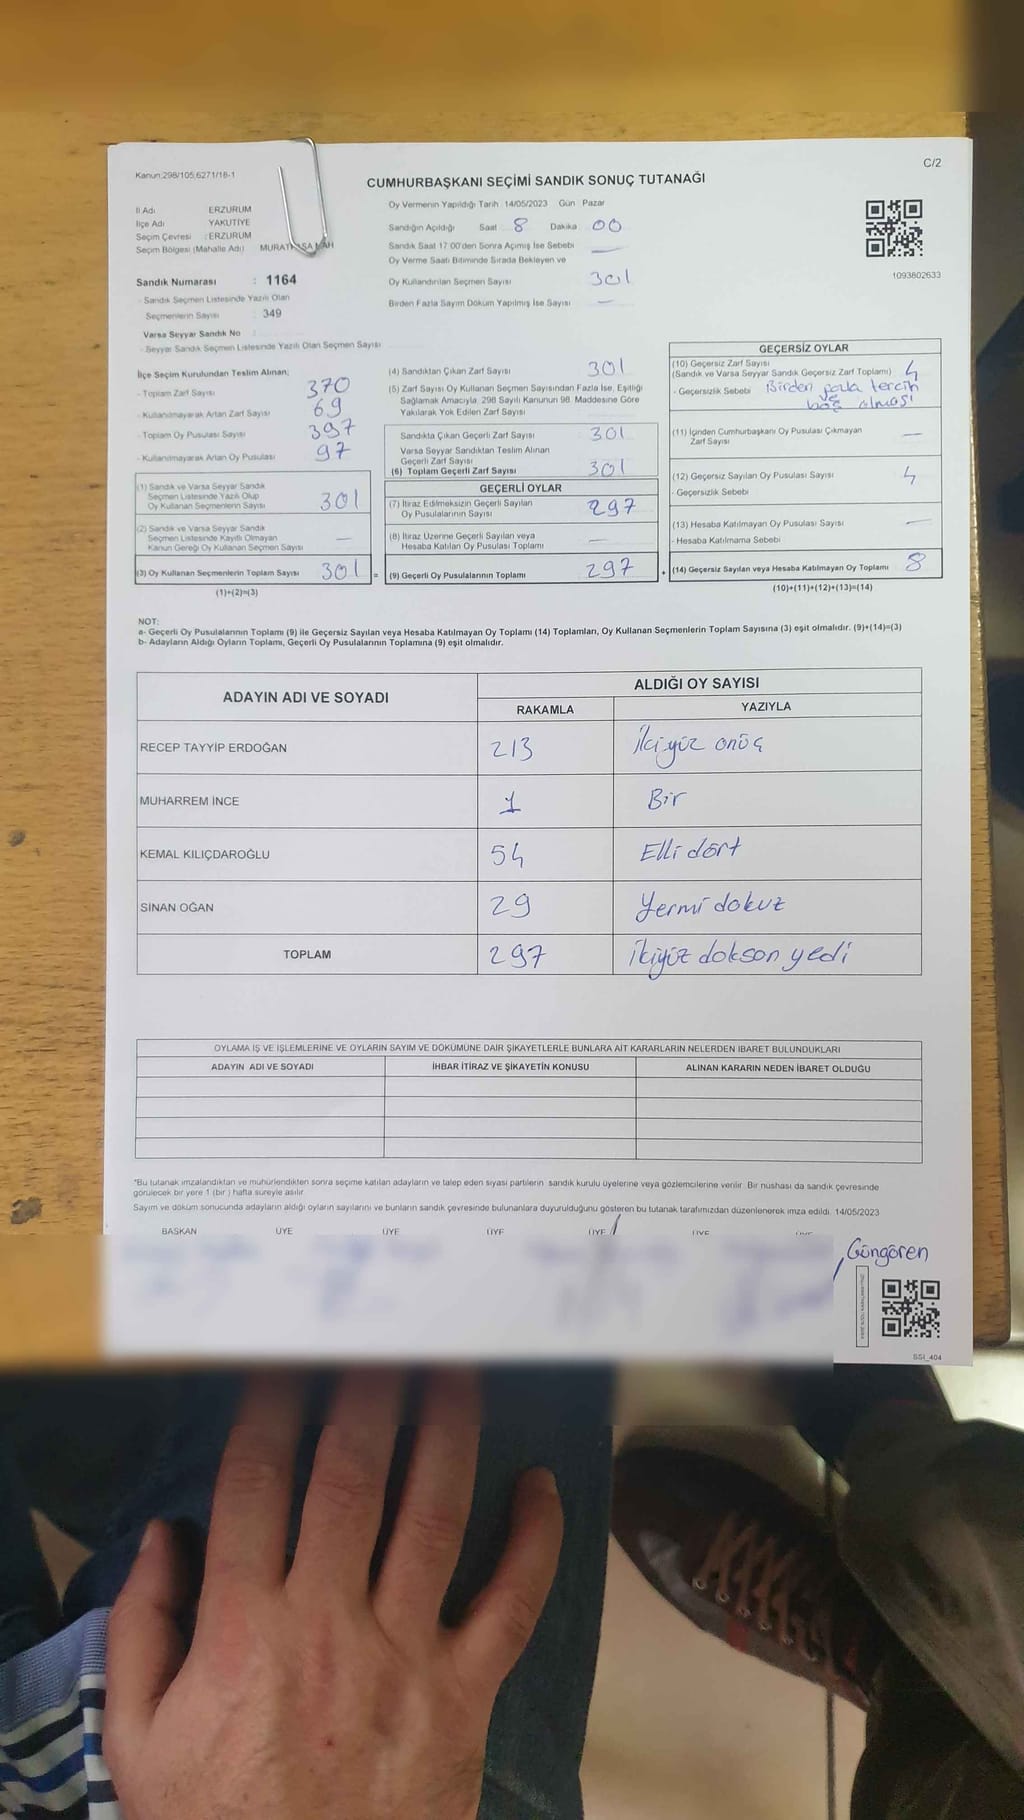 C/2
Kanun:298/105,6271/18-1
CUMHURBAŞKANI SEÇİMİ SANDIK SONUÇ TUTANAĞI
İl Adı ERZURUM
İlçe Adı YAKUTİYE
Seçim Çevresi : ERZURUM
Seçim Bölgesi (Mahalle Adı)
Sandık Numarası : 1164
- Sandık Seçmen Listesinde Yazılı Olan
Seçmenlerin Sayısı : 349
Varsa Seyyar Sandık No
- Seyyar Sandık Seçmen Listesinde Yazılı Olan Seçmen Sayısı
Oy Vermenin Yapıldığı Tarih 14/05/2023 Gün Pazar
Sandığın Açıldığı Saat 8 Dakika 00
Sandık Saat 17:00'den Sonra Açılmış İse Sebebi —
Oy Verme Saati Bitiminde Sırada Bekleyen ve
Oy Kullandırılan Seçmen Sayısı 301
Birden Fazla Sayım Döküm Yapılmış İse Sayısı —
1093802633
İlçe Seçim Kurulundan Teslim Alınan;
- Toplam Zarf Sayısı 370
- Kullanılmayarak Artan Zarf Sayısı 69
- Toplam Oy Pusulası Sayısı 397
- Kullanılmayarak Artan Oy Pusulası 97
(1) Sandık ve Varsa Seyyar Sandık
Seçmen Listesinde Yazılı Olup
Oy Kullanan Seçmenlerin Sayısı 301
(2) Sandık ve Varsa Seyyar Sandık
Seçmen Listesinde Kayıtlı Olmayan
Kanun Gereği Oy Kullanan Seçmen Sayısı —
(3) Oy Kullanan Seçmenlerin Toplam Sayısı 301 =
(1)+(2)=(3)
(4) Sandıktan Çıkan Zarf Sayısı 301
(5) Zarf Sayısı Oy Kullanan Seçmen Sayısından Fazla İse, Eşitliği
Sağlamak Amacıyla, 298 Sayılı Kanunun 98. Maddesine Göre
Yakılarak Yok Edilen Zarf Sayısı
Sandıkta Çıkan Geçerli Zarf Sayısı 301
Varsa Seyyar Sandıktan Teslim Alınan
Geçerli Zarf Sayısı
(6) Toplam Geçerli Zarf Sayısı 301
GEÇERLİ OYLAR
(7) İtiraz Edilmeksizin Geçerli Sayılan
Oy Pusulalarının Sayısı 297
(8) İtiraz Üzerine Geçerli Sayılan veya
Hesaba Katılan Oy Pusulası Toplamı —
(9) Geçerli Oy Pusulalarının Toplamı 297 +
GEÇERSİZ OYLAR
(10) Geçersiz Zarf Sayısı
(Sandık ve Varsa Seyyar Sandık Geçersiz Zarf Toplamı) 4
- Geçersizlik Sebebi Birden fazla tercih
ve
boş olması
(11) İçinden Cumhurbaşkanı Oy Pusulası Çıkmayan
Zarf Sayısı —
(12) Geçersiz Sayılan Oy Pusulası Sayısı 4
- Geçersizlik Sebebi
(13) Hesaba Katılmayan Oy Pusulası Sayısı —
- Hesaba Katılmama Sebebi
(14) Geçersiz Sayılan veya Hesaba Katılmayan Oy Toplamı 8
(10)+(11)+(12)+(13)=(14)
NOT:
a- Geçerli Oy Pusulalarının Toplamı (9) ile Geçersiz Sayılan veya Hesaba Katılmayan Oy Toplamı (14) Toplamları, Oy Kullanan Seçmenlerin Toplam Sayısına (3) eşit olmalıdır. (9)+(14)=(3)
b- Adayların Aldığı Oyların Toplamı, Geçerli Oy Pusulalarının Toplamına (9) eşit olmalıdır.
ADAYIN ADI VE SOYADI ALDIĞI OY SAYISI
RAKAMLA YAZIYLA
RECEP TAYYİP ERDOĞAN 213 İkiyüz onüç
MUHARREM İNCE 1 Bir
KEMAL KILIÇDAROĞLU 54 Elli dört
SİNAN OĞAN 29 Yermi dokuz
TOPLAM 297 İkiyüz dokson yedi
OYLAMA İŞ VE İŞLEMLERİNE VE OYLARIN SAYIM VE DÖKÜMÜNE DAİR ŞİKAYETLERLE BUNLARA AİT KARARLARIN NELERDEN İBARET BULUNDUKLARI
ADAYIN ADI VE SOYADI İHBAR İTİRAZ VE ŞİKAYETİN KONUSU ALINAN KARARIN NEDEN İBARET OLDUĞU
*Bu tutanak imzalandıktan ve mühürlendikten sonra seçime katılan adayların ve talep eden siyasi partilerin sandık kurulu üyelerine veya gözlemcilerine verilir. Bir nüshası da sandık çevresinde
görülecek bir yere 1 (bir) hafta süreyle asılır.
Sayım ve döküm sonucunda adayların aldığı oyların sayılarını ve bunların sandık çevresinde bulunanlara duyurulduğunu gösteren bu tutanak tarafımızdan düzenlenerek imza edildi. 14/05/2023
BAŞKAN ÜYE ÜYE ÜYE ÜYE ÜYE
Güngören
SSI_404